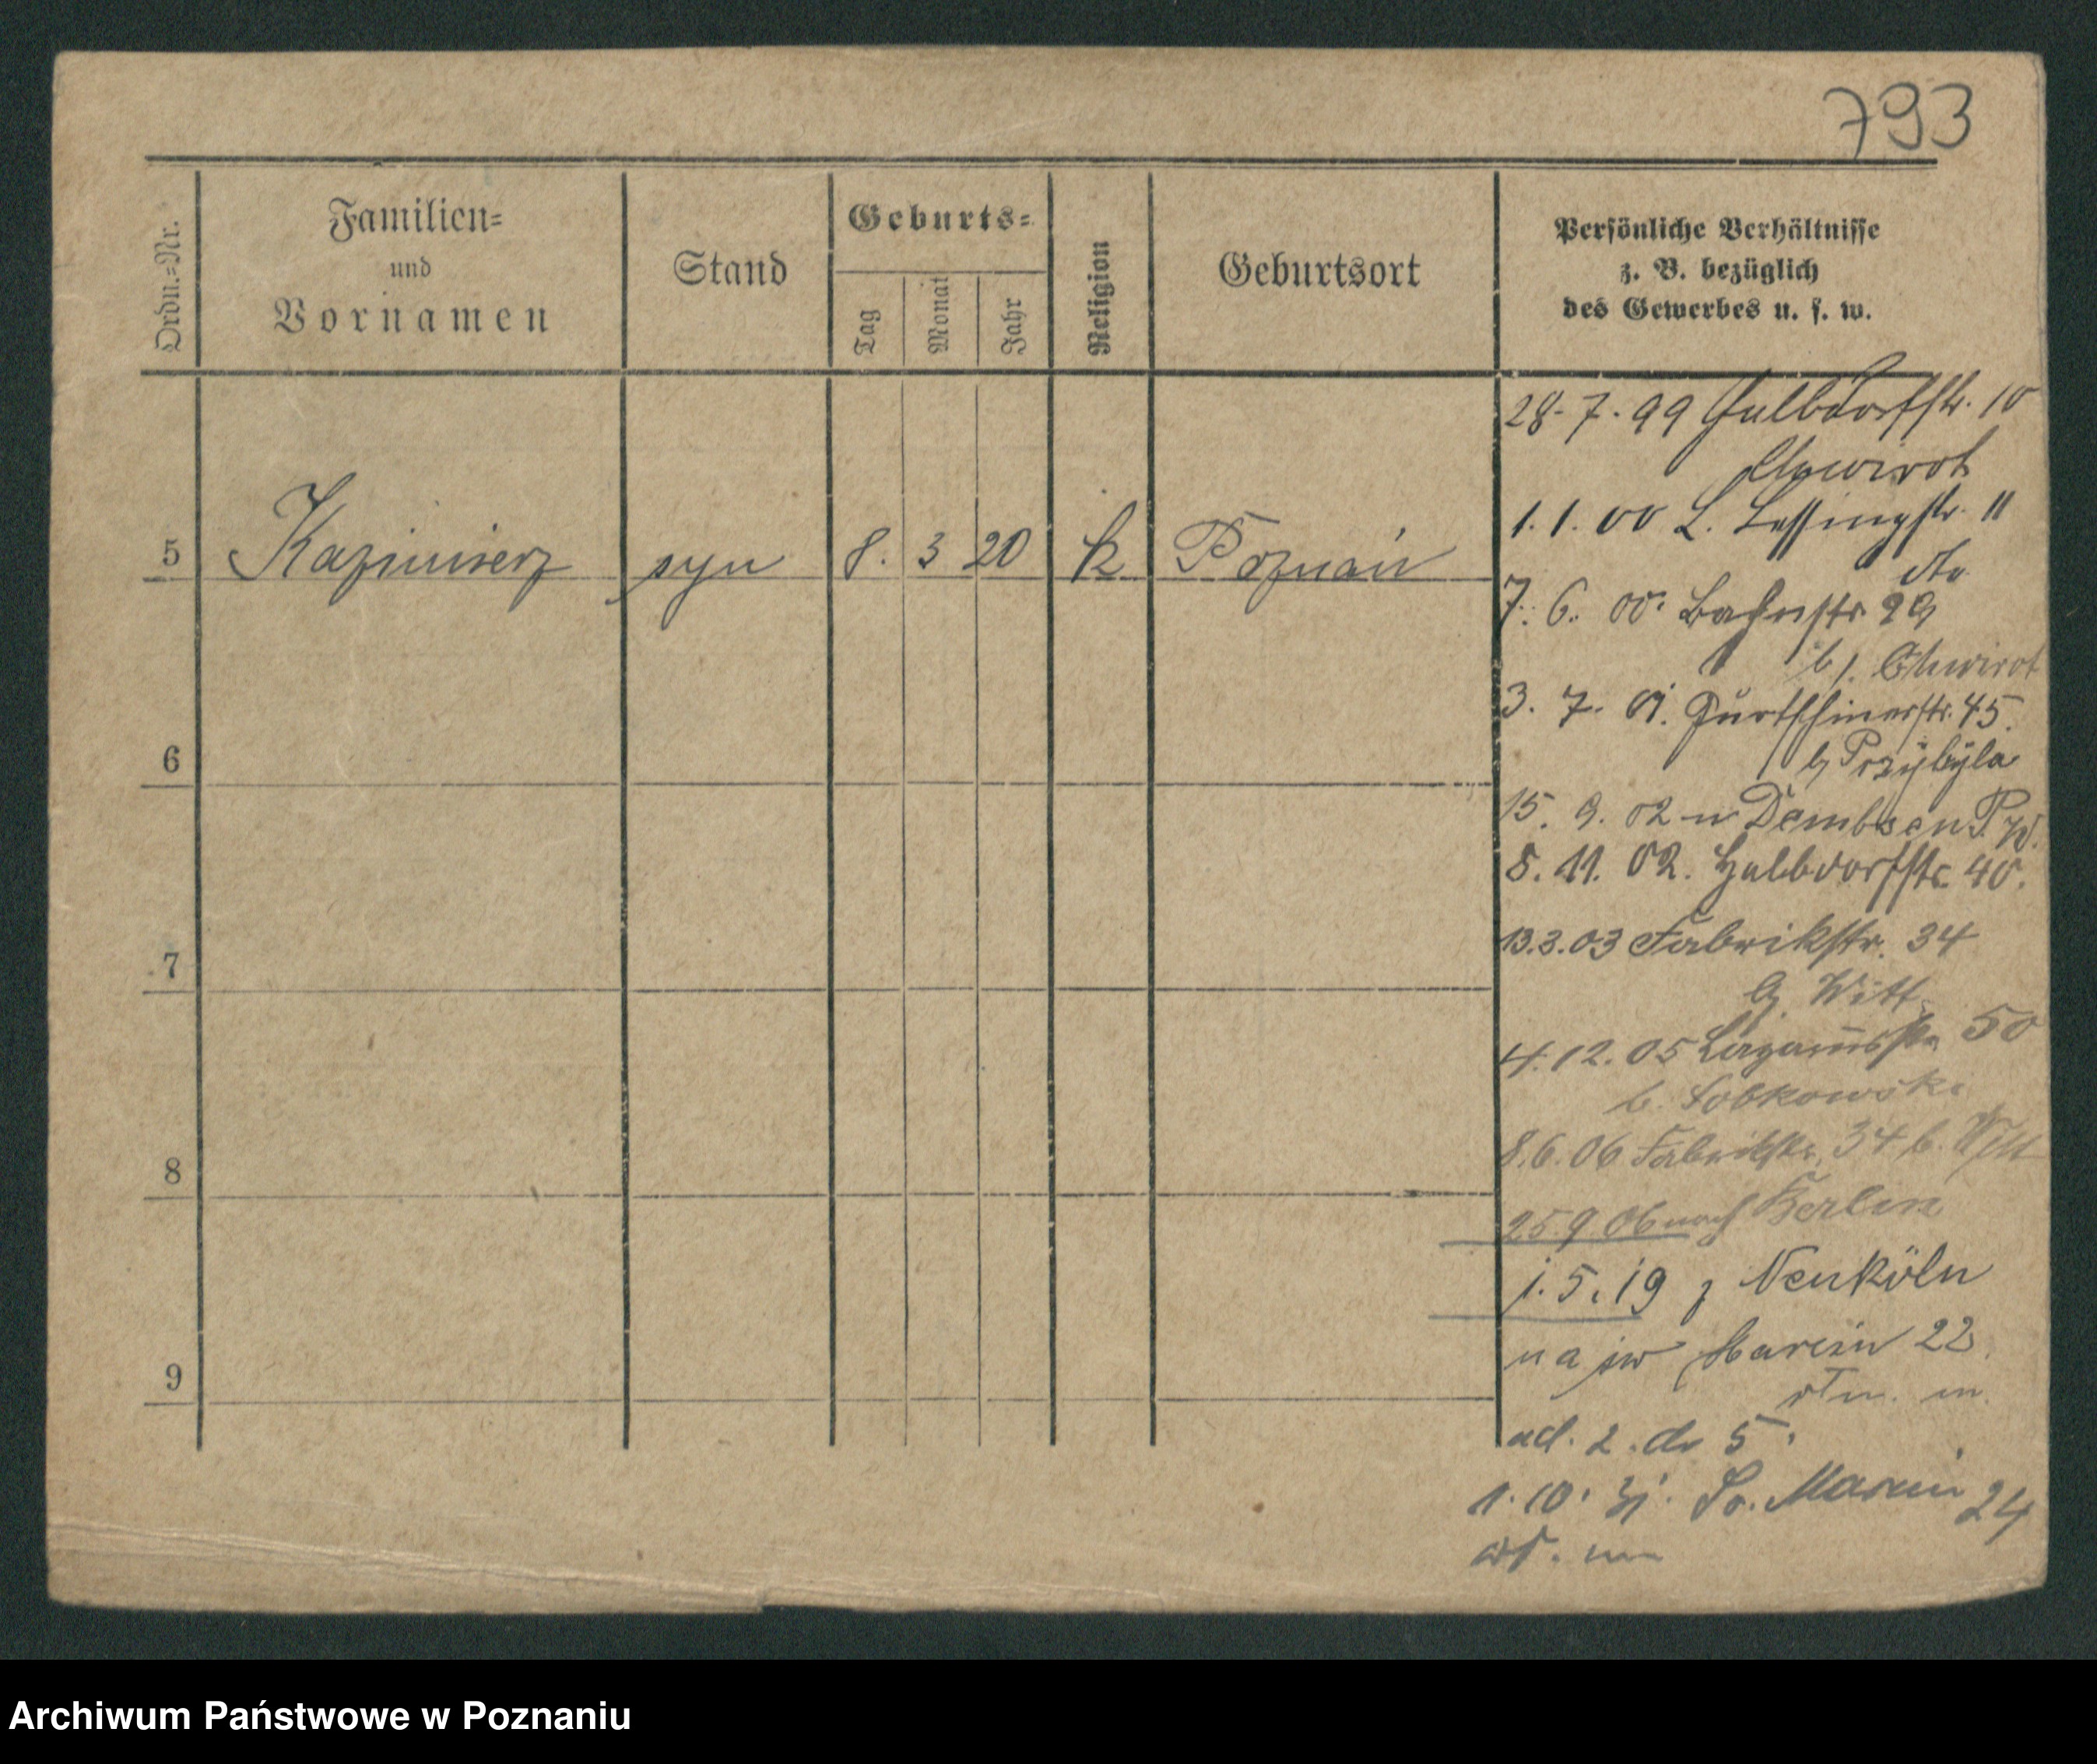 793
Ordn.=Nr.
Familien=
und
Vornamen
Stand
Geburts=
Tag
Monat
Jahr
Religion
Geburtsort
Persönliche Verhältnisse
z. B. bezüglich
des Gewerbes u. s. w.
28. 7. 99 Halbdorfstr. 10
1. 1. 00 L. Lessingstr. 11
5 Kazimierz syn 8. 3 20 k Poznań
7. 6. 00. Bahnstr. 29
b/. Chwirot
3. 7. 01. Gurtschinerstr. 45.
b Przybyla
6
15. 9. 02 n Dembsen P. W.
8. 11. 02. Halbdorfstr. 40.
13.3.03 Fabrikstr. 34
7
b. Witt
4. 12. 05 Lazarusstr. 50
b. Sobkowski
8.6.06 Fabrikstr. 34 b. Witt
8
25 9 06 nach Berlin
1. 5. 19 z Neuköln
na św Marcin 22.
9
ad. 2. do 5.
1. 10. 31. Św. Marcin 24
Archiwum Państwowe w Poznaniu